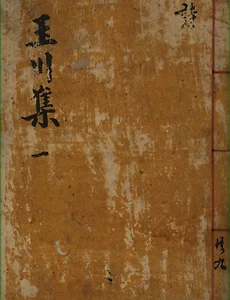 玉川集 一
共九